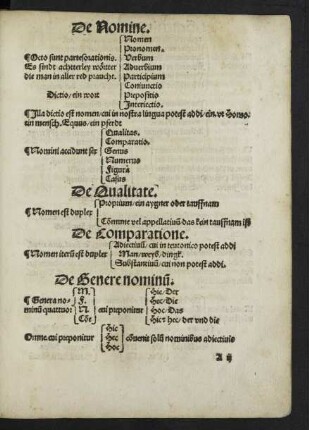 De Nomine.
Nomen
Pronomen.
¶ Octo sunt partes orationis. Verbum
Es sindt achterley wörter Adverbium
die man in aller red praucht. Participium
Coniunctio
Dictio / ein wort Prepositio
Interiectio.
¶ Illa dictio est nomen / cui in nostra lingua potest addi / ein / vt Homo.
ein mensch. Equus / ein pferdt
Qualitas.
Comparatio.
¶ Nomini accidunt sex Genus
Numerus
Figura
Casus
De Qualitate.
Proprium / ein aygner ober tauffnam
¶ Nomen est duplex
Cōmune vel appellatiuū das kein tauffnam ist
De Comparatione.
Adiectiuū / cui in teutonico potest addi
¶ Nomen iterū est duplex Man / weyb / dingk.
Substantiuū / cui non potest addi.
De Genere nominū.
M. Hic / Der
¶ Genera no- F. Hec / Die
minū quattuor N. cui preponitur Hoc / Das
Cōe Hic et hec / der vnd die
Hic
Omne cui preponitur Hec cōuenit solū nominibus adiectiuis
Hoc
A ij